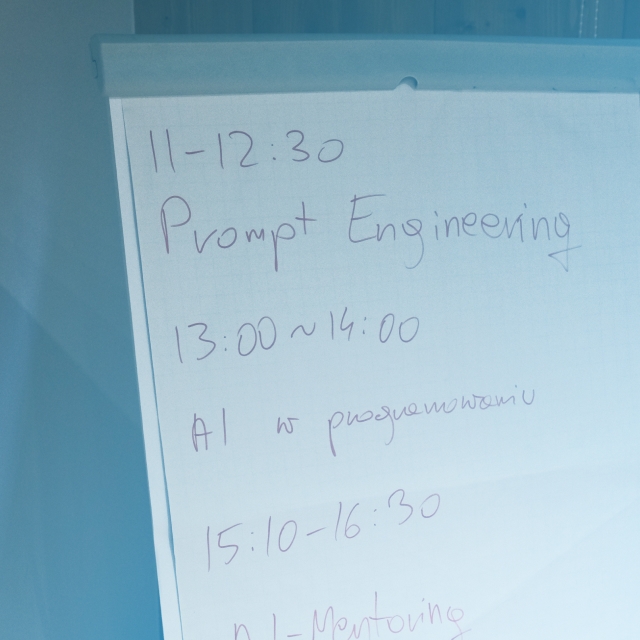 11-12:30
Prompt Engineering
13:00~14:00
AI w programowaniu
15:10-16:30
AI-Mentoring